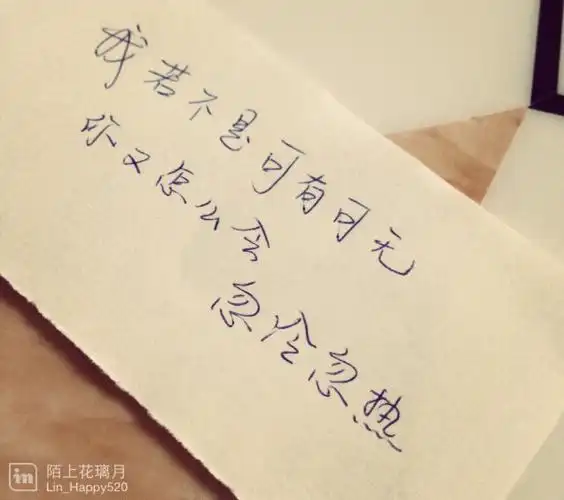 我若不是可有可无
你又怎么会
忽冷忽热
陌上花璃月
Lin_Happy520
in